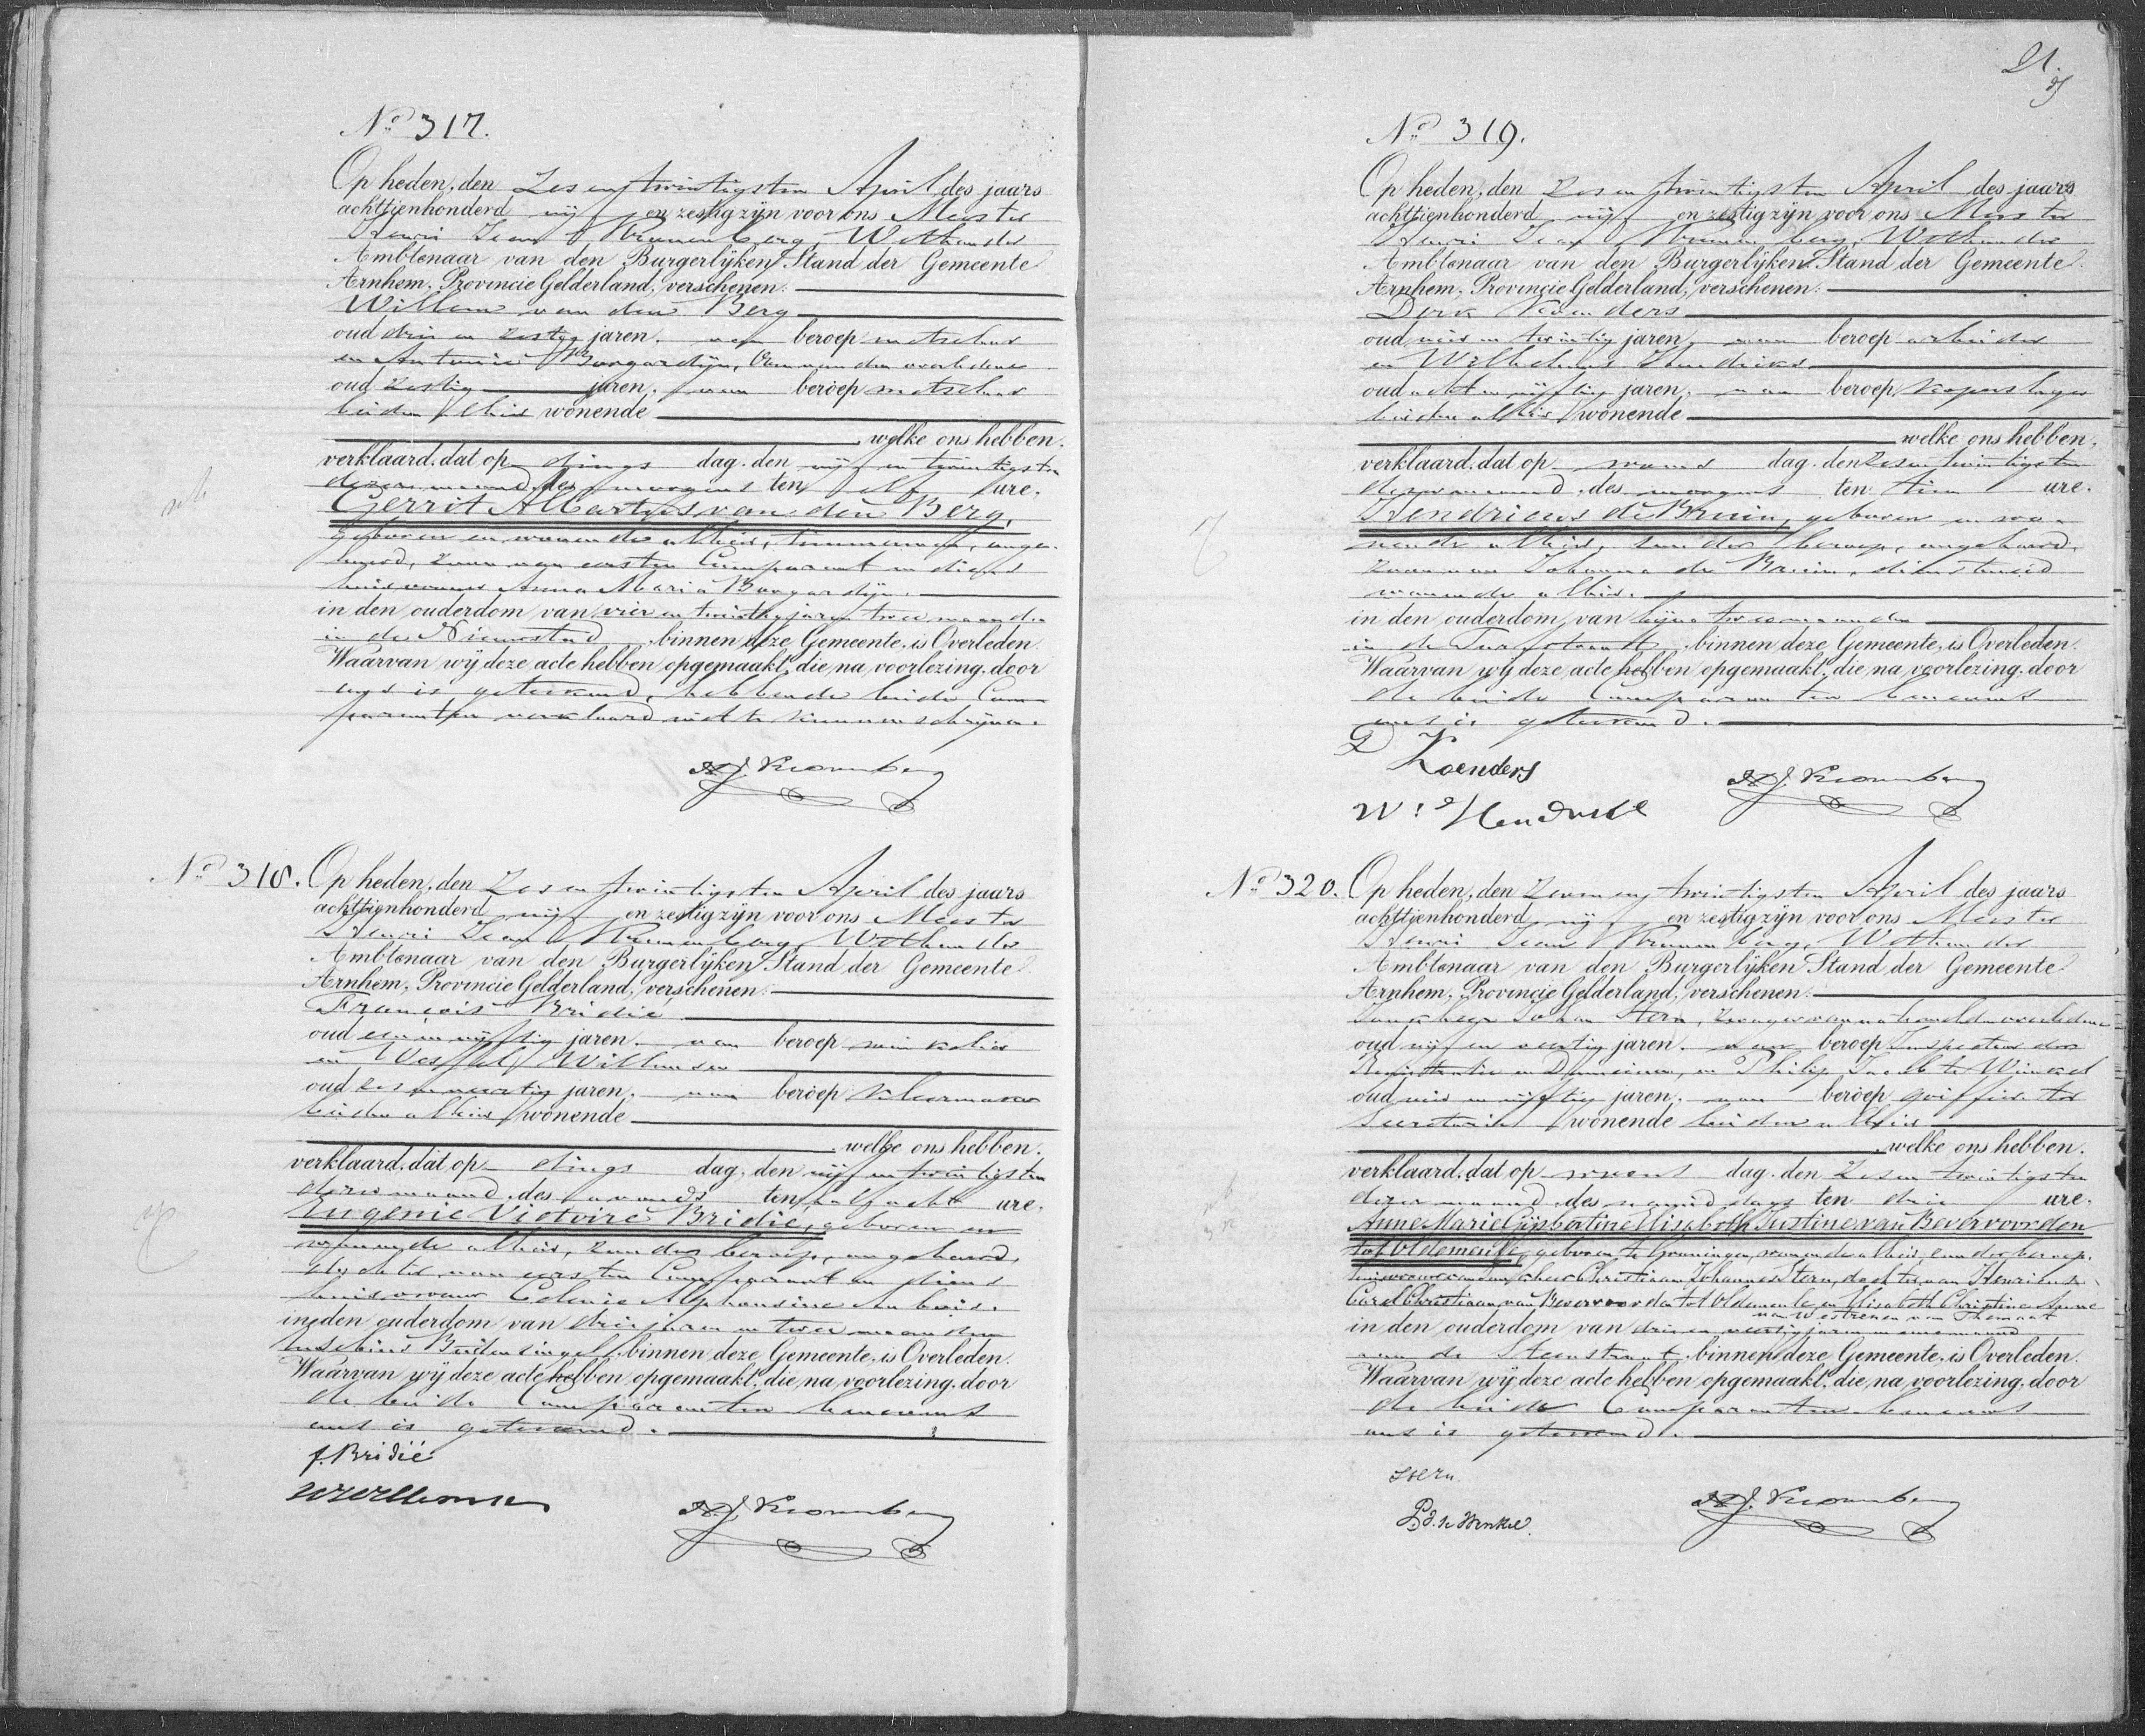 No 317.
Op heden, den Zes en twintigsten April des jaars
achttienhonderd vijf en zestig zijn voor ons Meester
Henri Jean Kronenberg, Wethouder
Ambtenaar van den Burgerlijken Stand der Gemeente
Arnhem, Provincie Gelderland, verschenen:
Willem van den Berg
oud drie en zestig jaren, van beroep metselaar
en Antonie Boogardijn, Oom van den overledene
oud zestig jaren, van beroep metselaar
beiden alhier wonende
welke ons hebben
verklaard, dat op dings dag den vijf en twintigsten
dezer maand, des morgens ten elf ure,
Gerrit Albartus van den Berg,
geboren en wonende alhier, timmerman, onge-
huwd, zoon van eersten Comparant en diens
huisvrouw Anna Maria Boogardijn.
in den ouderdom van vier en twintig jaren twee maanden
in de Nieuwstad binnen deze Gemeente, is Overleden.
Waarvan wij deze acte hebben opgemaakt, die, na voorlezing, door
ons is geteekend, hebbende beide Com-
paranten verklaard niet te kunnen schrijven.
H.J. Kronenberg
No 318. Op heden, den Zes en twintigsten April des jaars
achttienhonderd vijf en zestig zijn voor ons Meester
Henri Jean Kronenberg, Wethouder
Ambtenaar van den Burgerlijken Stand der Gemeente
Arnhem, Provincie Gelderland, verschenen:
François Bridié
oud een en vijftig jaren, van beroep winkelier
en Wessel Willemsen
oud zes en veertig jaren, van beroep
beiden alhier wonende
welke ons hebben
verklaard, dat op dings dag, den vijf en twintigsten
dezer maand, des avonds ten half acht ure,
Eugenie Victoire Bridié, geboren en
wonende alhier, zonder beroep, ongehuwd,
dochter van eersten Comparant en diens
huisvrouw Celenie Alphonsine Ambois.
in den ouderdom van drie jaren en twee maanden
Eusebius Buitensingel binnen deze Gemeente, is Overleden.
Waarvan wij deze acte hebben opgemaakt, die, na voorlezing, door
de beide Comparanten benevens
ons is geteekend.
f. Bridié
H.J. Kronenberg
21
No 319.
Op heden, den Zes en twintigsten April des jaars
achttienhonderd vijf en zestig zijn voor ons Meester
Henri Jean Kronenberg, Wethouder
Ambtenaar van den Burgerlijken Stand der Gemeente
Arnhem, Provincie Gelderland, verschenen:
Derk Koenders
oud vier en twintig jaren, van beroep arbeider
en Wilhelmus Hendriks
oud acht en vijftig jaren, van beroep koperslager
beiden alhier wonende
welke ons hebben
verklaard, dat op woens dag, den zes en twintigsten
dezer maand, des morgens ten tien ure,
Hendricus de Bruin, geboren en wo-
nende alhier, zonder beroep, ongehuwd,
zoon van Johanna de Bruin, dienstmeid
wonende alhier.
in den ouderdom van bijna twee maanden
in de Turfstraat binnen deze Gemeente, is Overleden.
Waarvan wij deze acte hebben opgemaakt, die, na voorlezing, door
de beide Comparanten benevens
ons is geteekend.
D Koenders
W: Hendriks
H.J. Kronenberg
No 320. Op heden, den Zeven en twintigsten April des jaars
achttienhonderd vijf en zestig zijn voor ons Meester
Henri Jean Kronenberg, Wethouder
Ambtenaar van den Burgerlijken Stand der Gemeente
Arnhem, Provincie Gelderland, verschenen:
Jonkheer Johan Stern, zwager van na te melden overledene
oud vijf en veertig jaren, van beroep Inspecteur der
Registratie en Domeinen, en Philip Jacob te Winkel
oud vier en vijftig jaren, van beroep griffier ter
Secretarie wonende beiden alhier
welke ons hebben
verklaard, dat op woens dag, den zes en twintigsten
dezer maand, des namiddags ten drie ure,
Anne Marie Gijsbertine Elisabeth Justine van Bevervoorden
tot Oldemeule, geboren te Groningen, wonende alhier, zonder beroep,
huisvrouw van Jonkheer Christiaan Johannes Stern, dochter van Henricus
Carel Christiaan van Bevervoorden tot Oldemeule en Elisabeth Christina Anna
van Westrenen van Themaat
in den ouderdom van drie en veertig jaren en eene maand
aan de Steenstraat binnen deze Gemeente, is Overleden.
Waarvan wij deze acte hebben opgemaakt, die, na voorlezing, door
de beide Comparanten benevens
ons is geteekend.
Stern
P.J. te Winkel.
H.J. Kronenberg